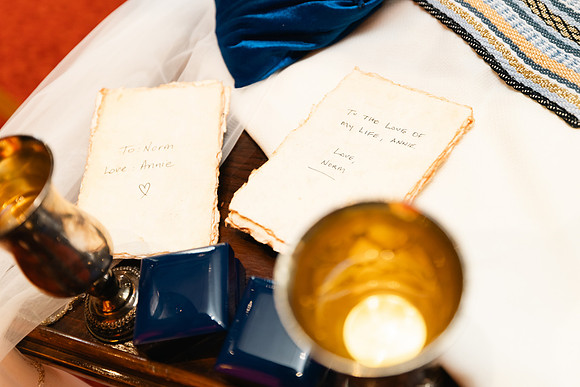 To: Norm
Love: Annie
♡
To the Love of
my Life, Annie
Love,
Norm